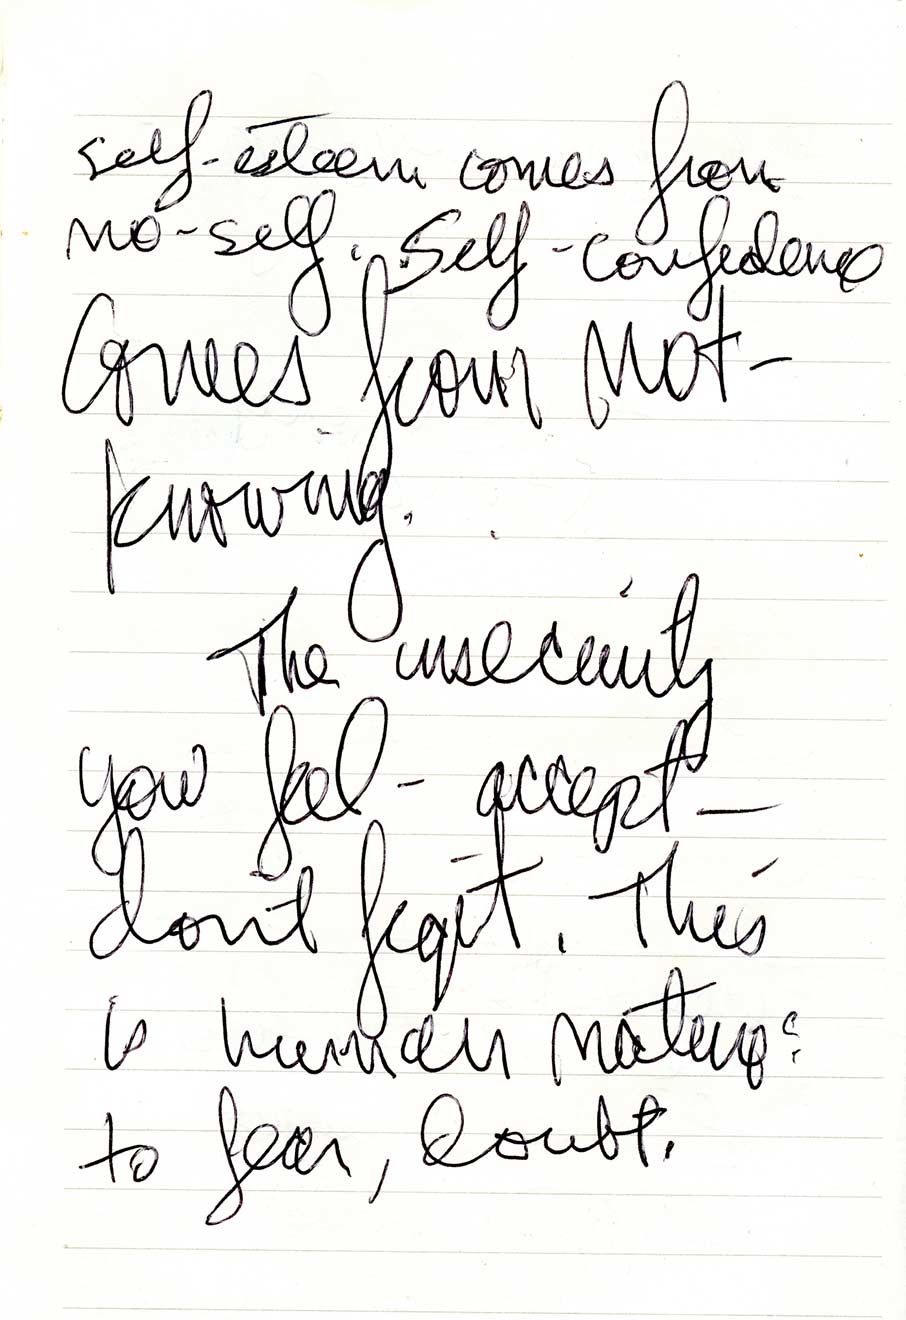 self-esteem comes from
no-self. Self-confidence
Comes from Not-
knowing.
The insecurity
you feel - accept -
don't fight. This
is human nature:
to fear, doubt.